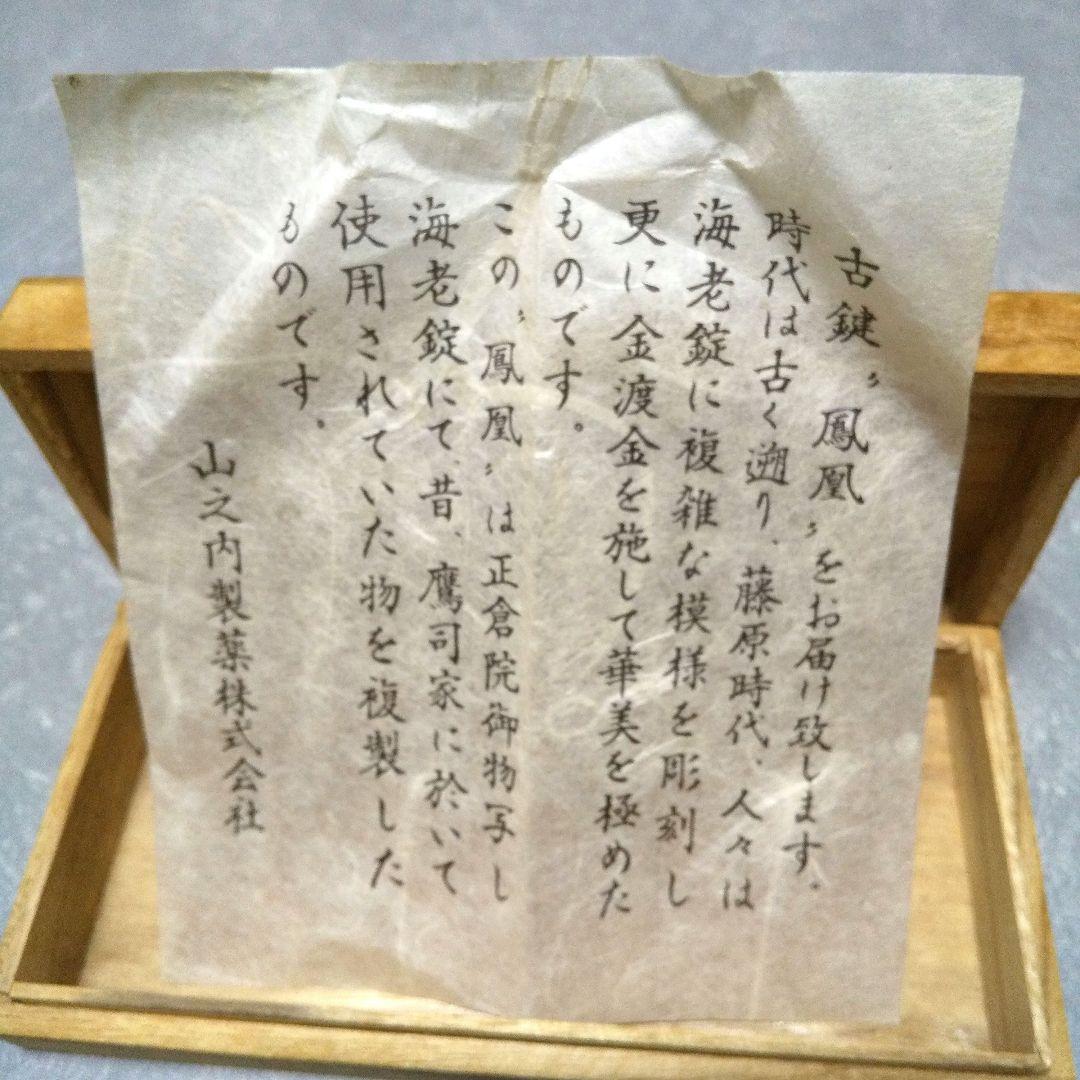 古鍵〝鳳凰〟をお届け致します。
時代は古く遡り、藤原時代、人々は
海老錠に複雑な模様を彫刻し
更に金渡金を施して華美を極めた
ものです。
この〝鳳凰〟は正倉院御物写し
海老錠にて、昔、鷹司家に於いて
使用されていた物を複製した
ものです。
山之内製薬株式会社